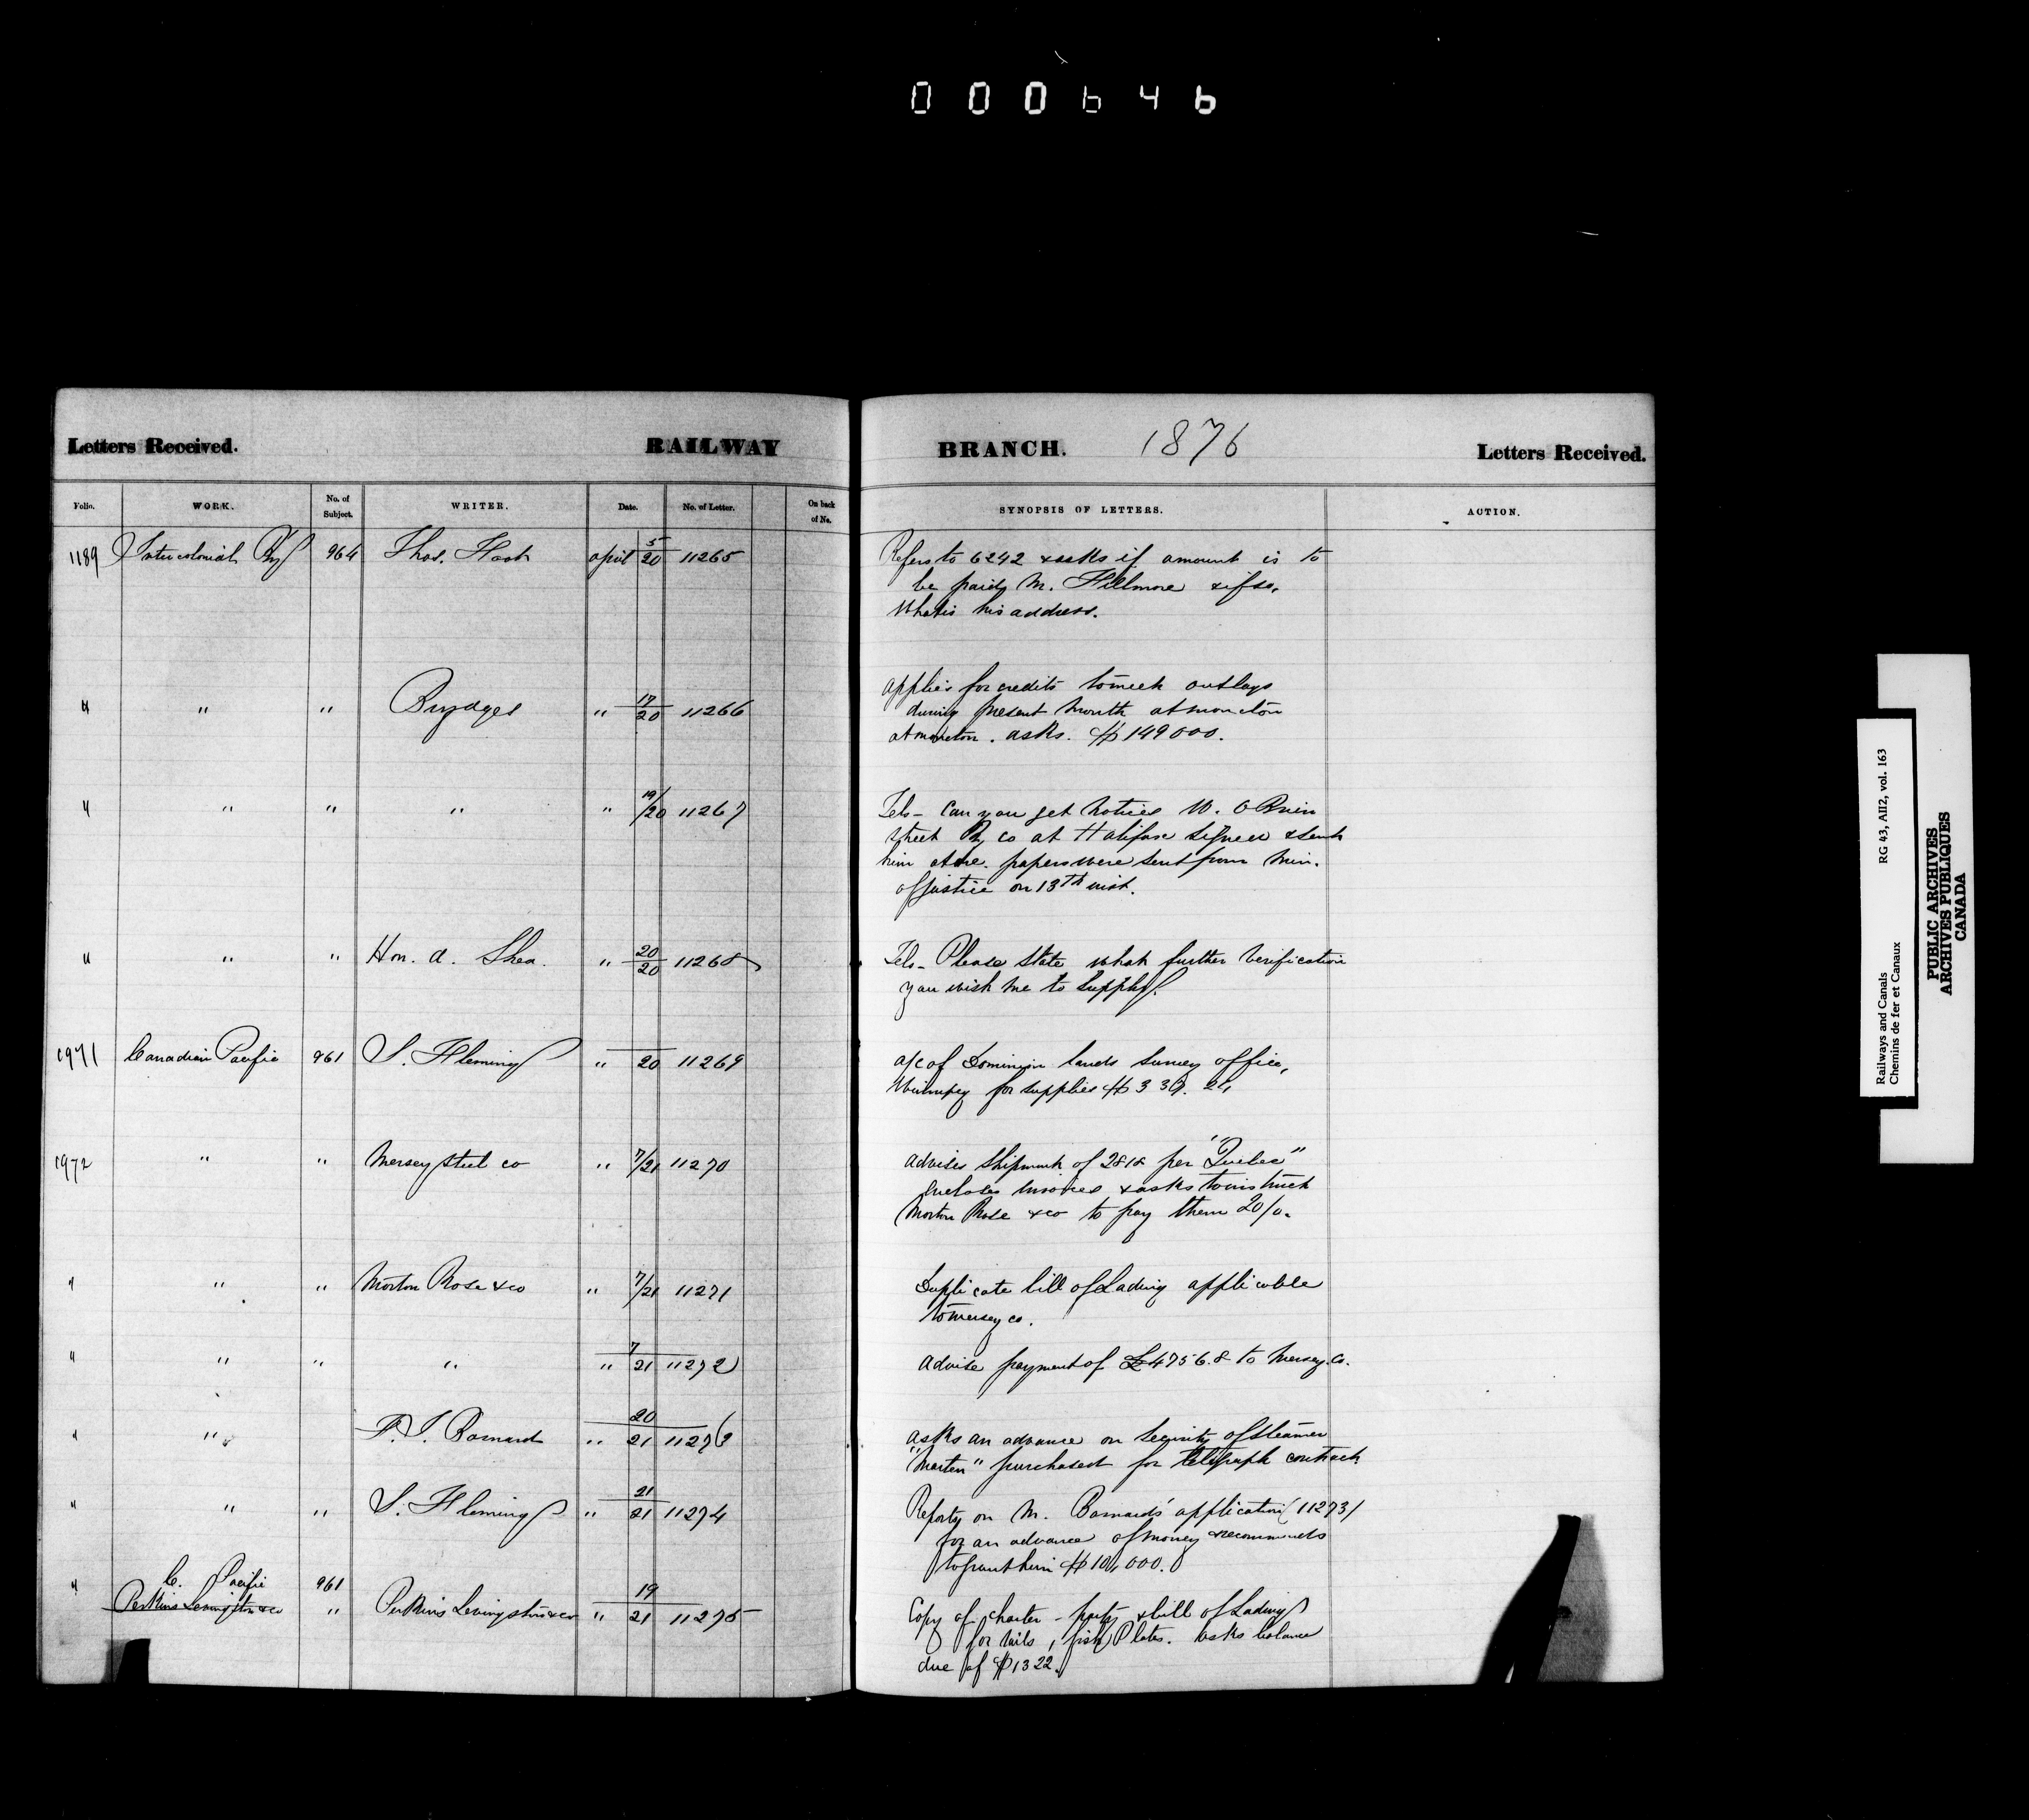 000646
Letters Received. RAILWAY BRANCH. 1876 Letters Received.
Folio. WORK. No. of Subject. WRITER. Date. No. of Letter. On back of No. SYNOPSIS OF LETTERS. ACTION.
1189 Intercolonial Ry 964 Thos. april 5/20 11265 Refers to 6242 & asks if amount is to
be paid M. Fillmore & if so,
What is his address.
" " " Brydges " 17/20 11266 applies for credits to meet outlays
during present month at moncton
at moncton. asks. $149000.
" " " " " 19/20 11267 Tels - Can you get notices W. O Brien
Street Ry co at Halifax signed & sent
him at one. papers were sent from Min.
of Justice on 13th inst.
" " " Hon. A. Shea. " 20/20 11268 Tels - Please state what further verification
you wish me to supply.
1971 Canadian Pacific 961 S. Fleming " 20 11269 a/c of Dominion lands Survey office,
Winnipeg for supplies $339.
1972 " " Mersey Steel co " 7/21 11270 advises shipment of 2818 per "Quebec"
Encloses invoices & asks to instruct
Morton Rose & co to pay them 20/0.
" " " Morton Rose & co " 7/21 11271 Duplicate bill of Lading applicable
to mersey co.
" " " " " 7/21 11272 Advise payment of £4756.8 to Mersey. Co.
" " F. J. Barnard " 20/21 11273 asks an advance on security of steamer
"Marten" purchased for telegraph contract
" " " S. Fleming " 21/21 11274 Reports on M. Barnard's application (11273)
for an advance of money & recommends
to grant him $10,000.
" C. Pacific 961
Perkins Levingston & co " Perkins Levingston & co " 19/21 11275 Copy of charter - party & bill of Lading
for rails, fish Plates. Asks balance
due of $1322.
Railways and Canals RG 43, AII2, vol. 163
Chemins de fer et Canaux
PUBLIC ARCHIVES
ARCHIVES PUBLIQUES
CANADA